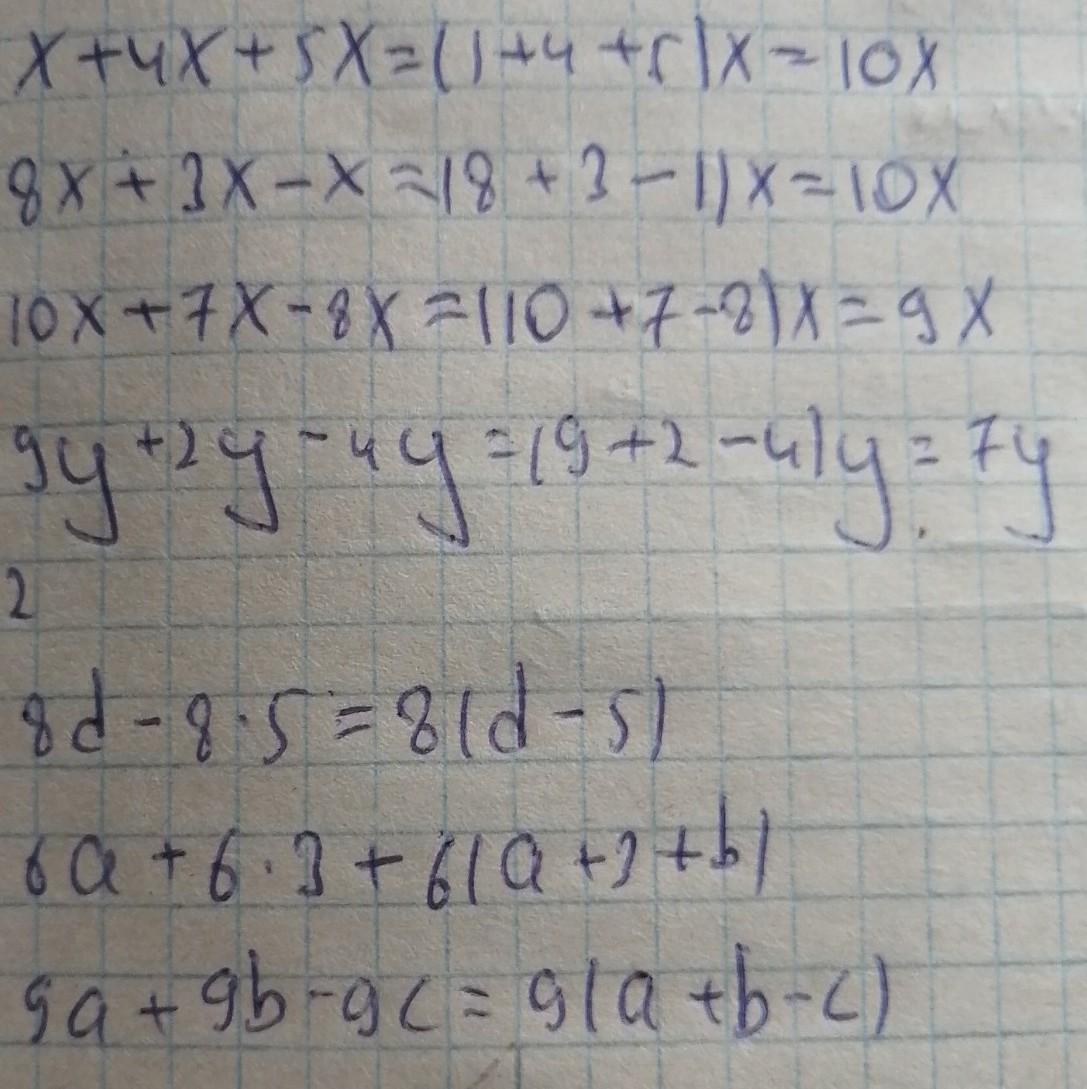 x+4x+5x=(1+4+5)x=10x
8x+3x-x=(8+3-1)x=10x
10x+7x-8x=(10+7-8)x=9x
9y+2y-4y=(9+2-4)y=7y
2
8d-8·5=8(d-5)
6a+6·3+6(a+3+b)
9a+9b-9c=9(a+b-c)